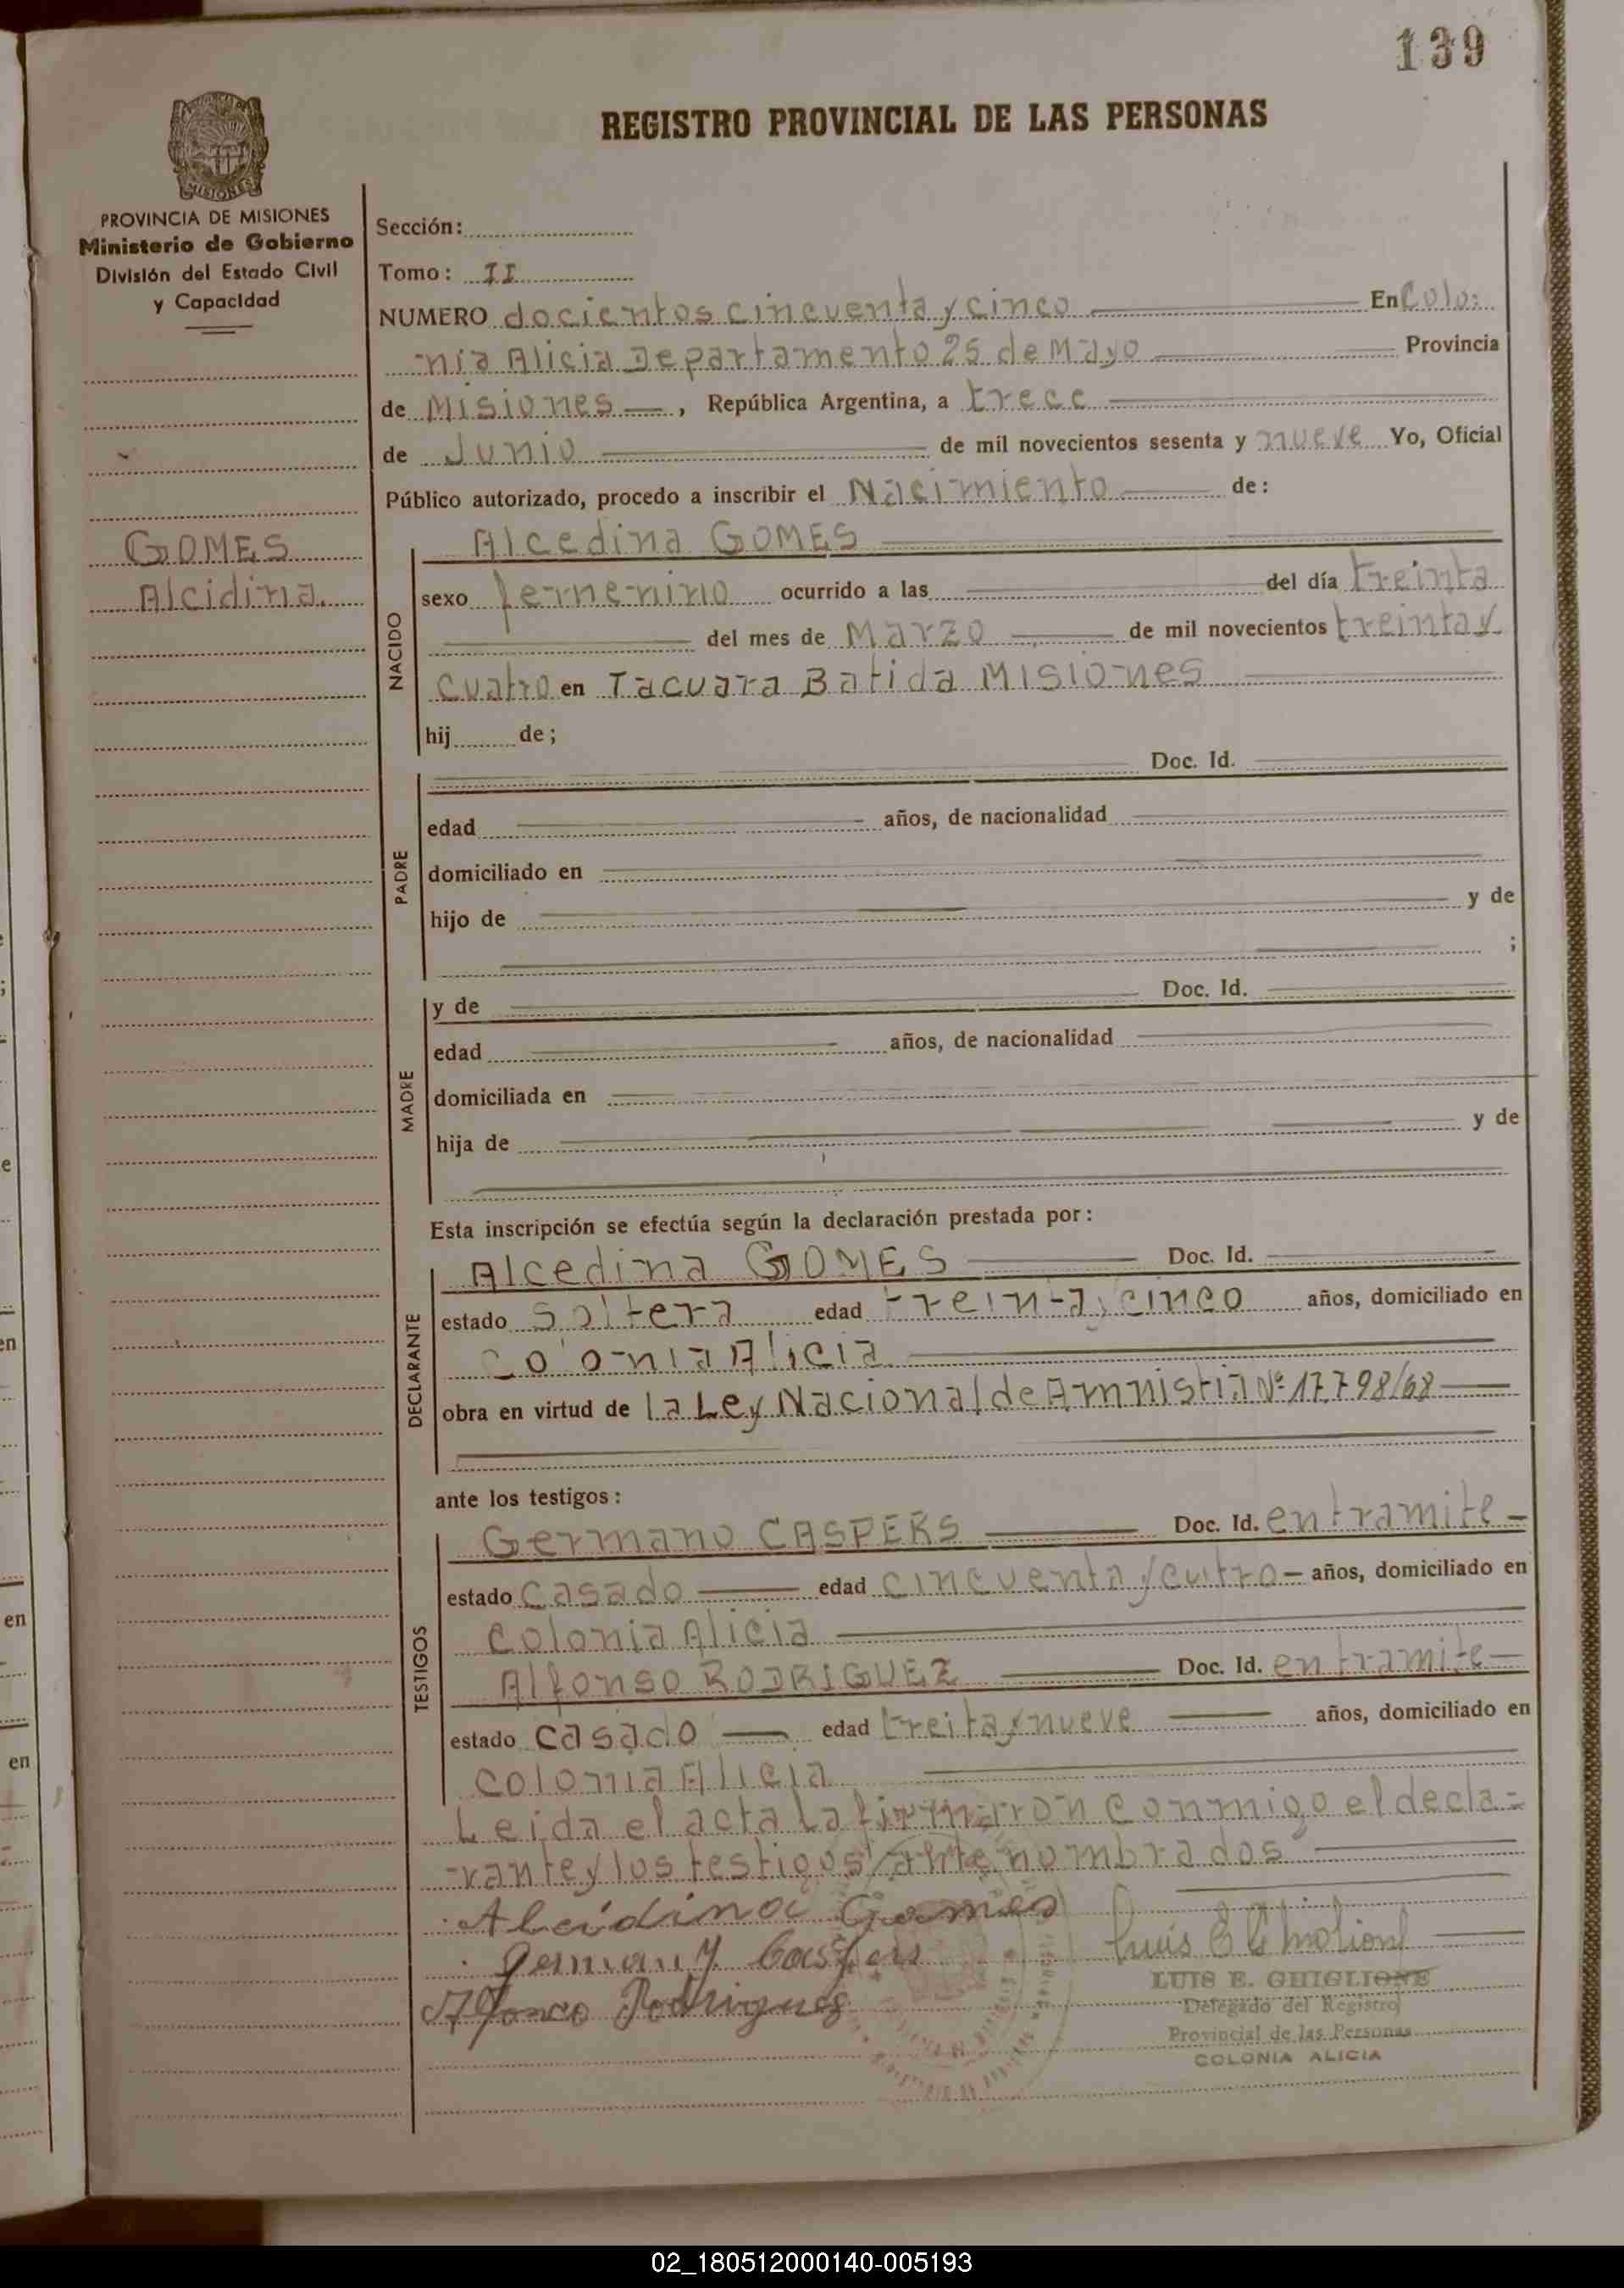 139
REGISTRO PROVINCIAL DE LAS PERSONAS
MISIONES
PROVINCIA DE MISIONES
Ministerio de Gobierno
División del Estado Civil
y Capacidad
GOMES
Alcidina.
Sección:
Tomo: II
NUMERO docientos cincuenta y cinco En Colo:
-nia Alicia Departamento 25 de Mayo Provincia
de Misiones, República Argentina, a trece
de Junio de mil novecientos sesenta y nueve Yo, Oficial
Público autorizado, procedo a inscribir el Nacimiento de:
NACIDO
Alcedina GOMES
sexo femenino ocurrido a las del día treinta
del mes de Marzo de mil novecientos treinta y
cuatro en Tacuara Batida Misiones
hij de;
PADRE
Doc. Id.
edad años, de nacionalidad
domiciliado en
hijo de y de
;
MADRE
y de Doc. Id.
edad años, de nacionalidad
domiciliada en
hija de y de
Esta inscripción se efectúa según la declaración prestada por:
DECLARANTE
Alcedina GOMES Doc. Id.
estado soltera edad treinta y cinco años, domiciliado en
Colonia Alicia
obra en virtud de la Ley Nacional de Amnistia Nº 17.798/68
ante los testigos:
TESTIGOS
Germano CASPERS Doc. Id. en tramite
estado casado edad cincuenta y cutro años, domiciliado en
Colonia Alicia
Alfonso RODRIGUEZ Doc. Id. en tramite
estado casado edad treita y nueve años, domiciliado en
Colonia Alicia
Leida el acta la firmarron conmigo el decla=
-rante y los testigos ante nombrados
Alcidina Gomes
Germany Caspers
Alfonco Rodrigues
LUIS E. GHIGLIONE
Delegado del Registro
Provincial de las Personas
COLONIA ALICIA
02_180512000140-005193